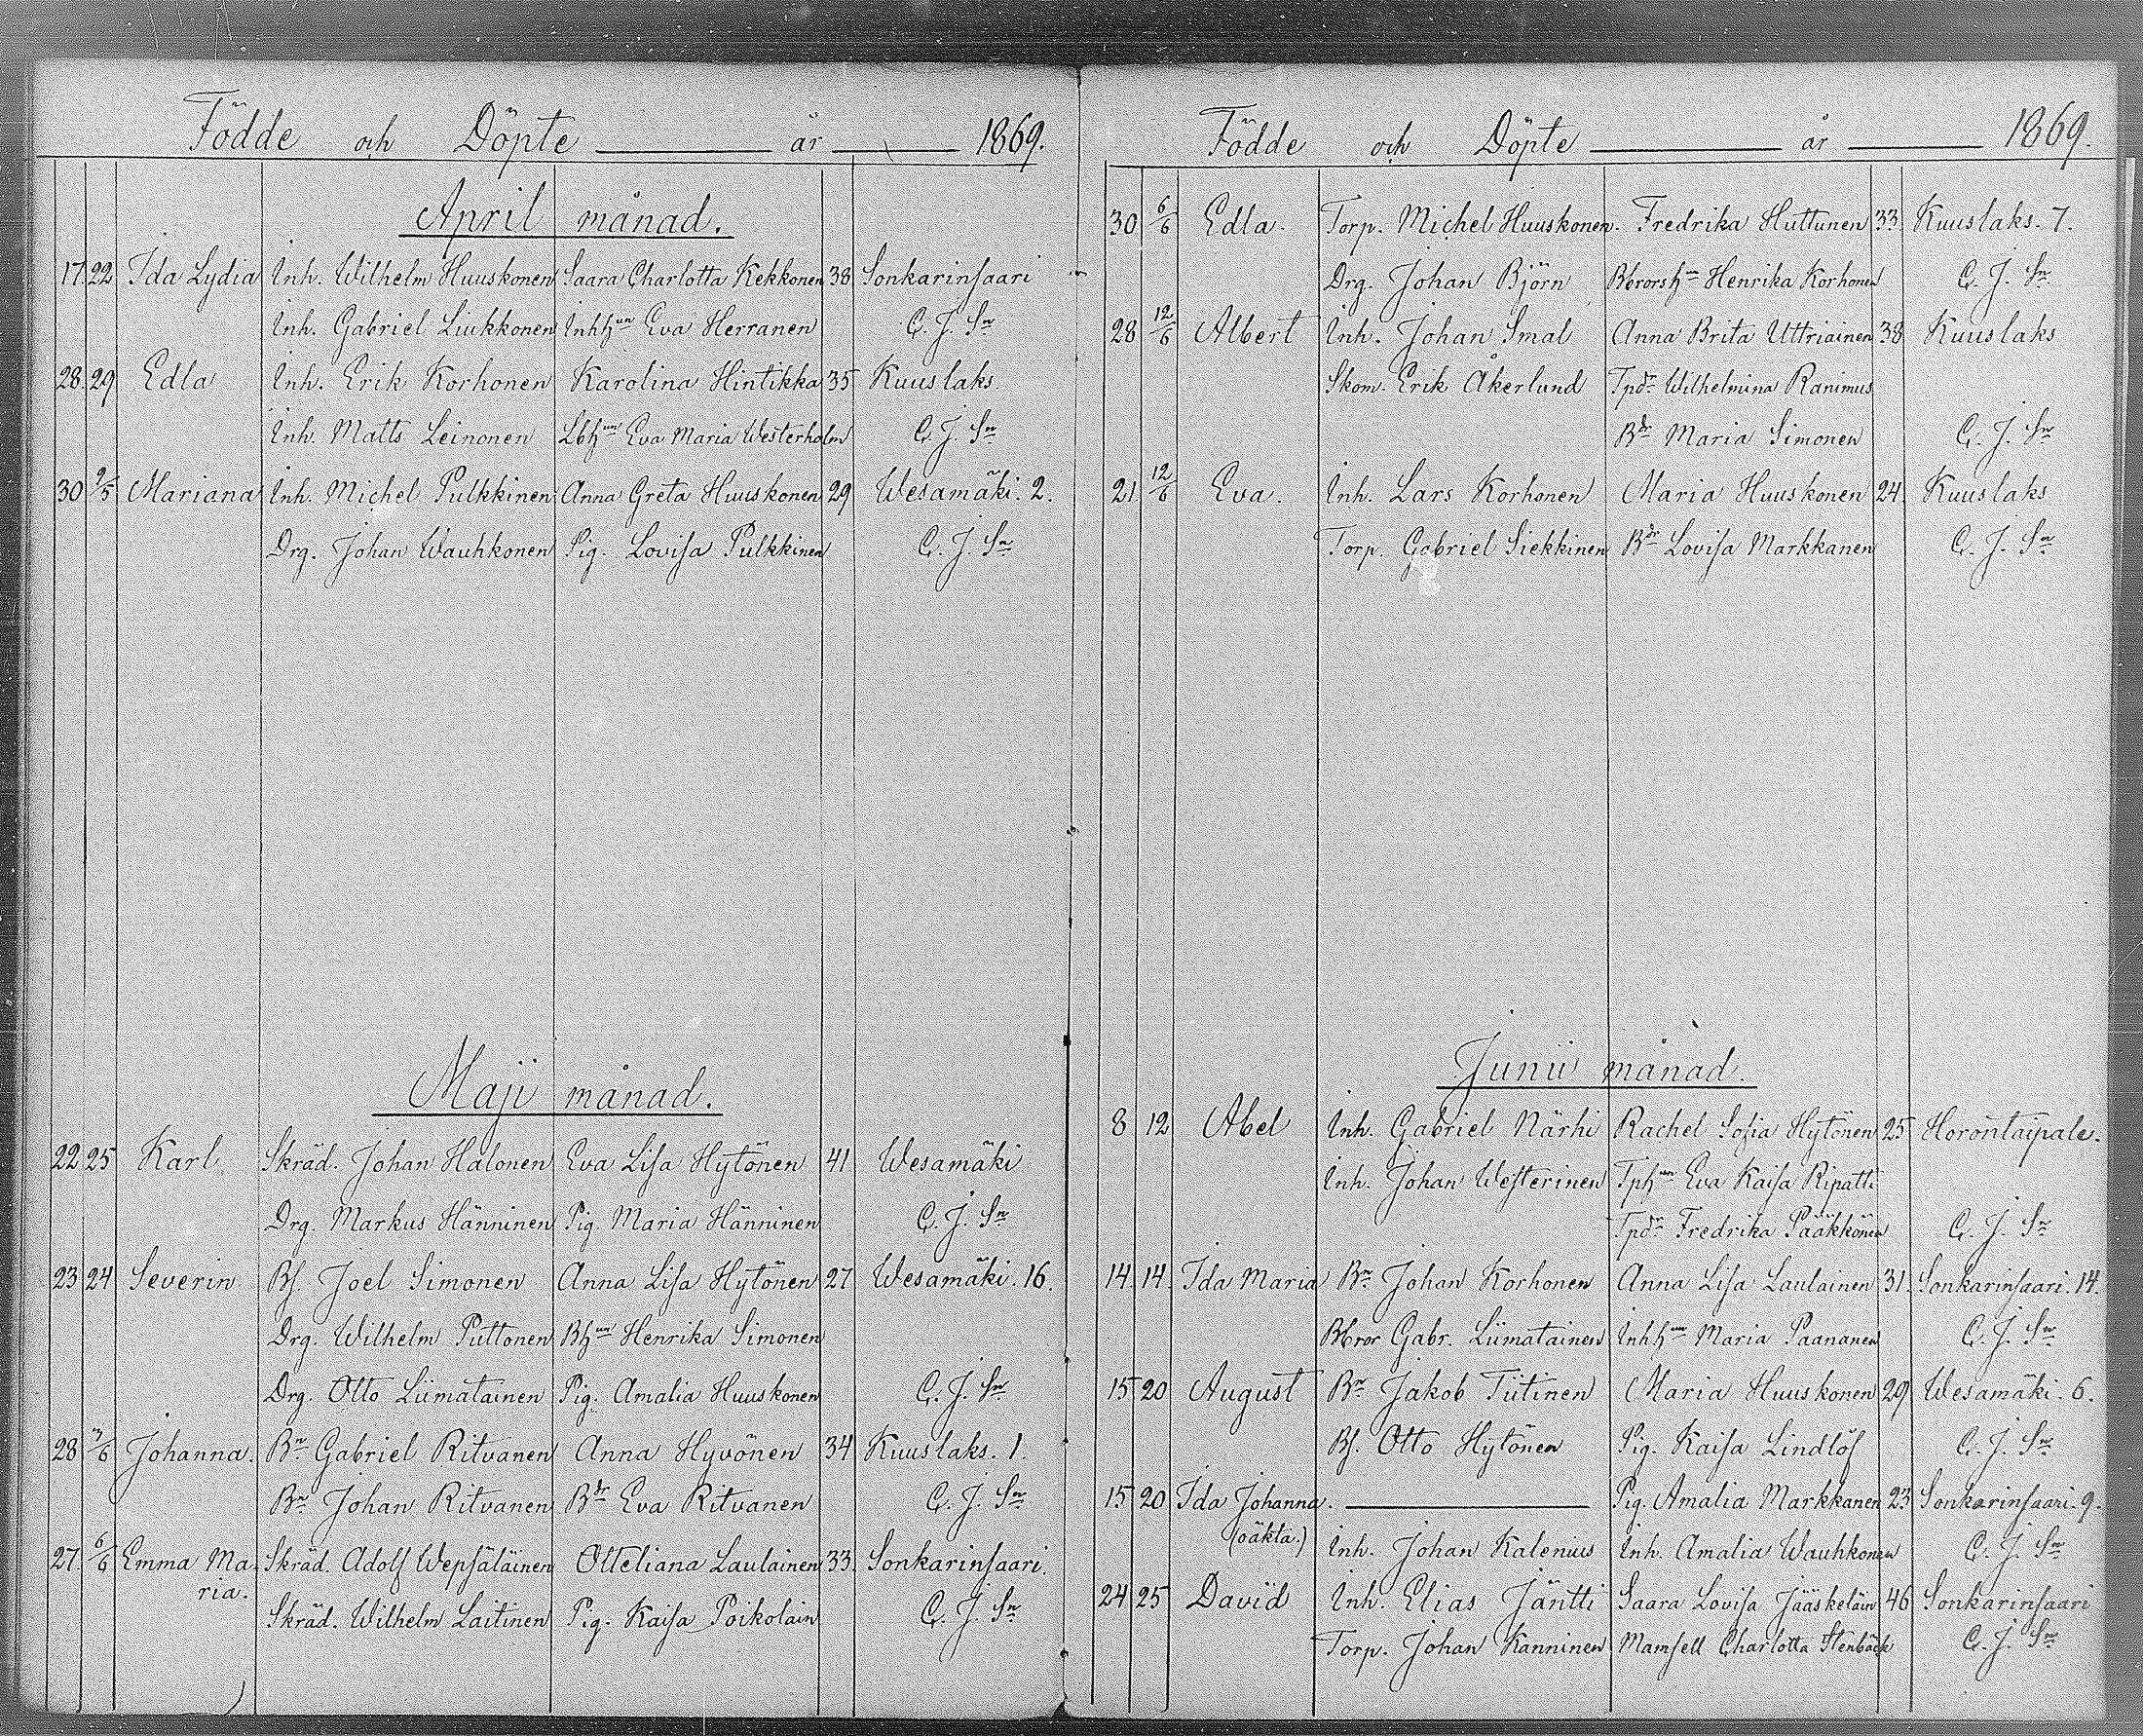 Födde och Döpte år 1869.
April månad.
17. 22 Ida Lydia Inh. Wilhelm Huuskonen Saara Charlotta Kekkonen 38 Sonkarinsaari
Inh. Gabriel Liukkonen Inhhun Eva Herranen C. J. Sn
28. 29 Edla Inh. Erik Korhonen Karolina Hintikka 35 Kuuslaks.
Inh. Matts Leinonen Lbhun Eva Maria Westerholm C. J. Sn
30 2/5 Mariana Inh. Michel Pulkkinen Anna Greta Huuskonen 29 Wesamäki. 2.
Drg. Johan Wauhkonen Pig. Lovisa Pulkkinen C. J. Sn
Maji månad.
22 25 Karl Skräd. Johan Halonen Eva Lisa Hytönen 41 Wesamäki
Drg. Markus Hänninen Pig. Maria Hänninen C. J. Sn
23 24 Severin Bs. Joel Simonen Anna Lisa Hytönen 27 Wesamäki. 16.
Drg. Wilhelm Puttonen Bhun Henrika Simonen
Drg. Otto Liimatainen Pig. Amalia Huuskonen C. J. Sn
28 /6 Johanna. Bn Gabriel Ritvanen Anna Hyvönen 34 Kuuslaks. 1.
Bn Johan Ritvanen Bdr Eva Ritvanen C. J. Sn
27. 6/6 Emma Ma- Skräd. Adolf Wepsäläinen Otteliana Laulainen 33. Sonkarinsaari.
ria.
Skräd. Wilhelm Laitinen Pig. Kaisa Poikolain C. J. Sn
Födde och Döpte år 1869.
30 6/6 Edla. Torp. Michel Huuskonen. Fredrika Huttunen 33. Kuuslaks. 7.
Drg. Johan Björn Bbrorshun Henrika Korhonen C. J. Sn
28 12/6 Albert Inh. Johan Smal Anna Brita Uttriainen 38 Kuuslaks
Skom. Erik Åkerlund Tpdr Wilhelmina Ranimus
Bdr Maria Simonen C. J. Sn
21. 12/6 Eva. Inh. Lars Korhonen Maria Huuskonen 24. Kuuslaks
Torp. Gabriel Siekkinen Bdr Lovisa Markkanen C. J. Sn
Junii månad.
8 12 Abel Inh. Gabriel Närhi Rachel Sofia Hytönen 25 Horontaipale.
Inh. Johan Westerinen Tphun Eva Kaisa Ripatti
Tpdr Fredrika Pääkkönen C. J. Sn
14. 14. Ida Maria Bn Johan Korhonen Anna Lisa Laulainen 31. Sonkarinsaari. 14.
Bbror Gabr. Liimatainen Inhhun Maria Paananen C. J. Sn
15 20 August Bn Jakob Tiitinen Maria Huuskonen 29 Wesamäki. 6.
Bs. Otto Hytönen Pig. Kaisa Lindlöf C. J. Sn
15 20 Ida Johanna. Pig. Amalia Markkanen 23 Sonkarinsaari. 9.
(oäkta.) Inh. Johan Kalenius Inh. Amalia Wauhkonen C. J. Sn
24 25 David Inh. Elias Jäntti Saara Lovisa Jääskeläin 46 Sonkarinsaari
Torp. Johan Kanninen Mamsell Charlotta Stenbäck C. J. Sn